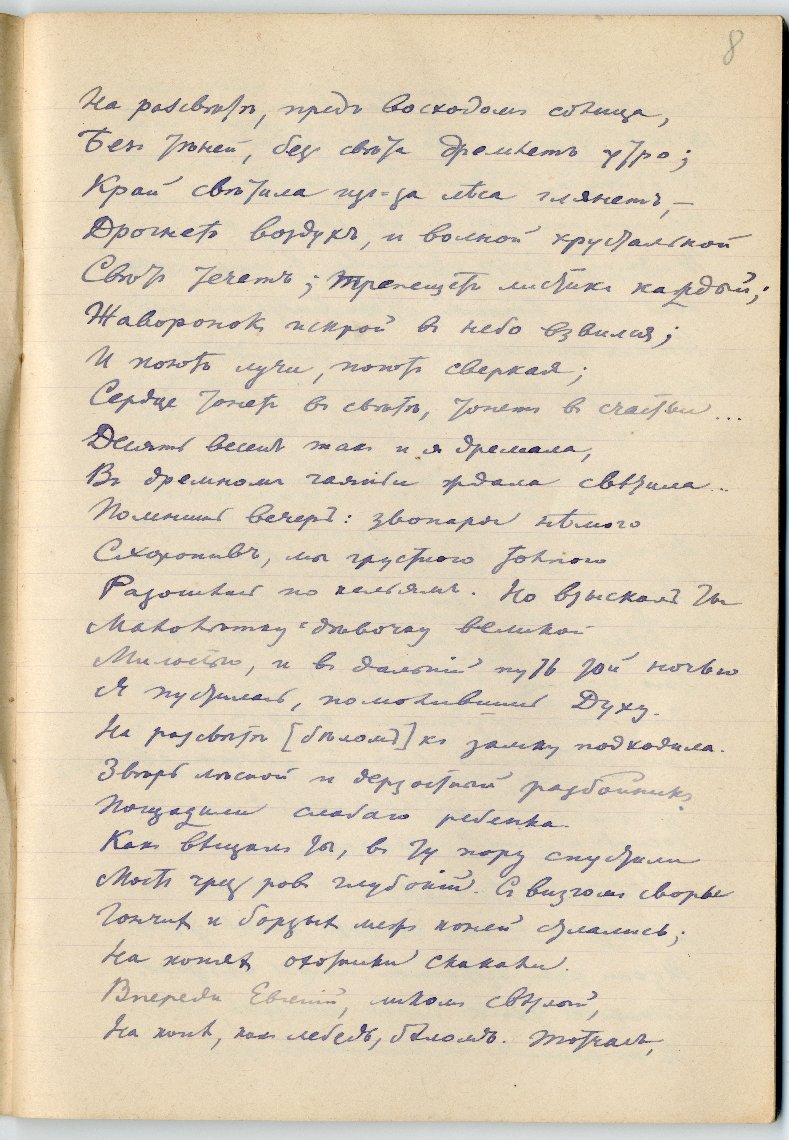 8
На разсвѣтѣ, предъ восходомъ солнца,
Безъ тѣней, безъ свѣта дремлетъ утро;
Край свѣтила изъ-за лѣса глянетъ,—
Дрогнетъ воздухъ, и волной хрустальной
Свѣтъ течетъ; трепещетъ листикъ каждый;
Жаворонокъ искрой въ небо взвился;
И поютъ лучи, поютъ сверкая;
Сердце тонетъ въ свѣтѣ, тонетъ въ счастьи...
Десять весенъ такъ и я дремала,
Въ дремномъ чаяньи ждала свѣтила...
Помнишь вечеръ: звонаря нѣмого
Схоронивъ, мы грустною толпою
Разошлись по кельямъ. Но взыскалъ ты
Малолѣтку-дѣвочку великой
Милостью, и въ дальній путь той ночью
Я пустилась, помолившись Духу.
На разсвѣтѣ [бѣломъ] къ замку подходила.
Звѣрь лѣсной и дерзостный разбойникъ
Пощадили слабаго ребенка.
Какъ вѣщалъ ты, въ ту пору спустили
Мостъ чрезъ ровъ глубокій. Съ визгомъ своры
Гончихъ и борзыхъ межъ коней стлались;
На коняхъ охотники скакали.
Впереди Евгеній, ликомъ свѣтлый,
На конѣ, какъ лебедь, бѣломъ. Тотчасъ,